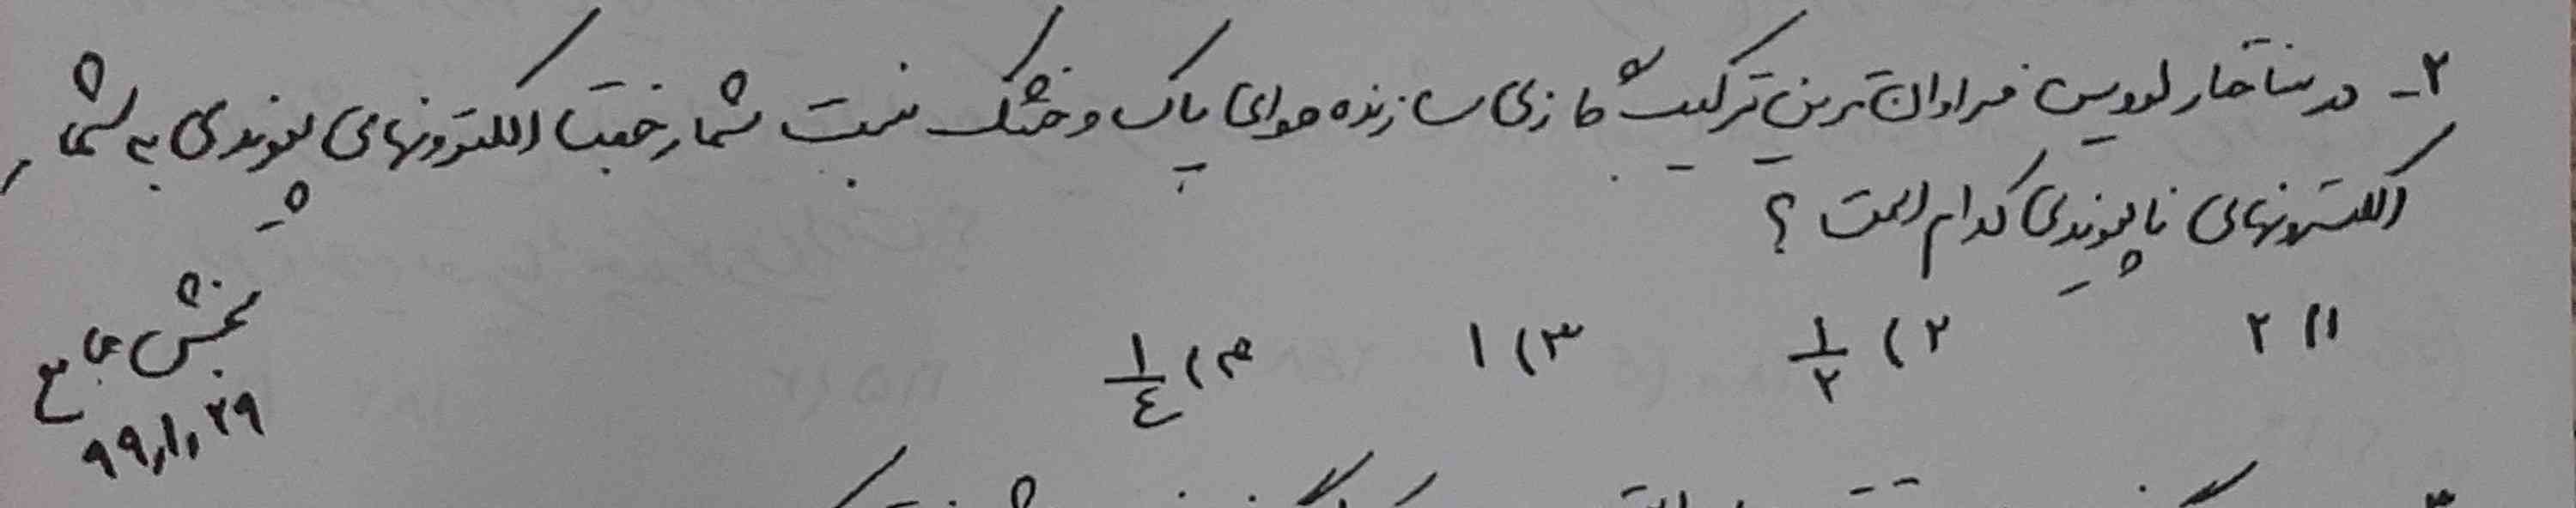 ۲- در ساختار لوویس فراوان‌ترین ترکیب گازی سازنده هوای پاک و خشک نسبت شمار جفت الکترونهای پیوندی به شمار
الکترونهای ناپیوندی کدام است ؟
۱) ۲ ۲) ۱/۲ ۳) ۱ ۴) ۱/۴
سنجش جامع
۹۹,۱,۲۹